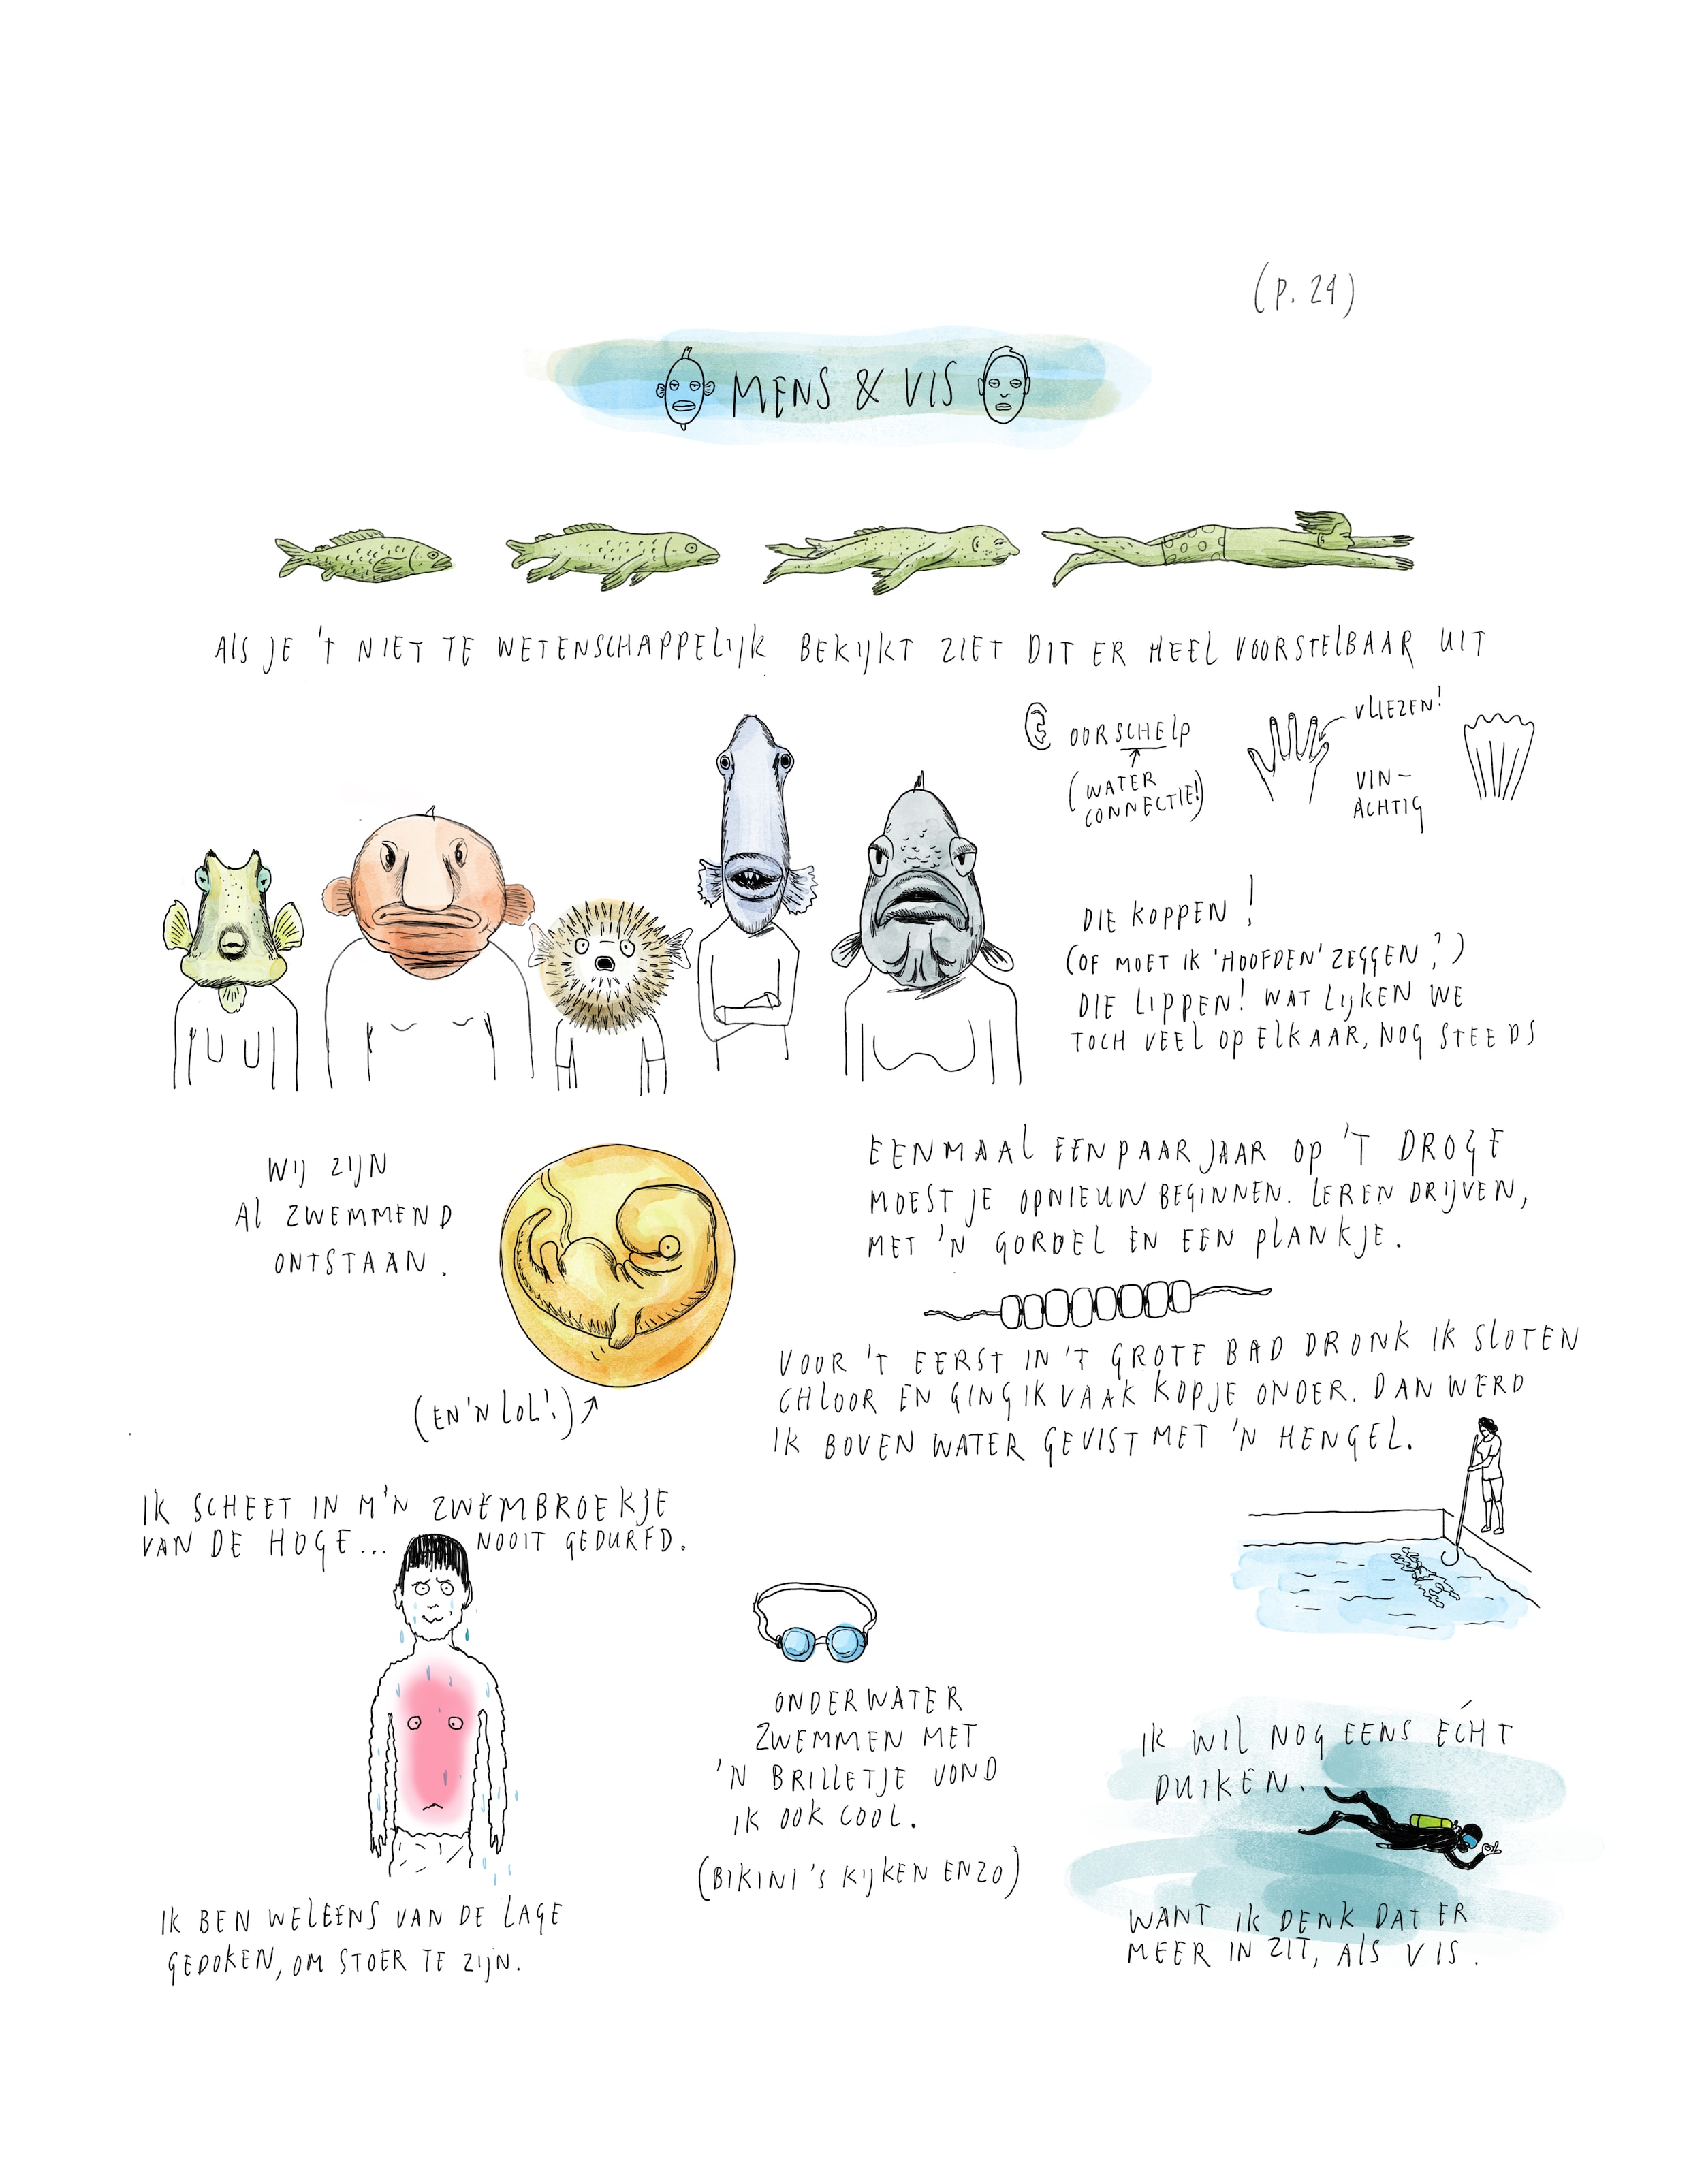 (P. 24)
MENS & VIS
ALS JE 'T NIET TE WETENSCHAPPELIJK BEKIJKT ZIET DIT ER HEEL VOORSTELBAAR UIT
OORSCHELP
(WATER
CONNECTIE!)
VLIEZEN!
VIN-
ACHTIG
DIE KOPPEN!
(OF MOET IK 'HOOFDEN' ZEGGEN?)
DIE LIPPEN! WAT LIJKEN WE
TOCH VEEL OP ELKAAR, NOG STEEDS
WIJ ZIJN
AL ZWEMMEND
ONTSTAAN.
(EN 'N LOL!)
EENMAAL EEN PAAR JAAR OP 'T DROGE
MOEST JE OPNIEUW BEGINNEN. LEREN DRIJVEN,
MET 'N GORDEL EN EEN PLANKJE.
VOOR 'T EERST IN 'T GROTE BAD DRONK IK SLOTEN
CHLOOR EN GING IK VAAK KOPJE ONDER. DAN WERD
IK BOVEN WATER GEVIST MET 'N HENGEL.
IK SCHEET IN M'N ZWEMBROEKJE
VAN DE HOGE... NOOIT GEDURFD.
IK BEN WELEENS VAN DE LAGE
GEDOKEN, OM STOER TE ZIJN.
ONDERWATER
ZWEMMEN MET
'N BRILLETJE VOND
IK OOK COOL.
(BIKINI'S KIJKEN ENZO)
IK WIL NOG EENS ÉCHT
DUIKEN.
WANT IK DENK DAT ER
MEER IN ZIT, ALS VIS.